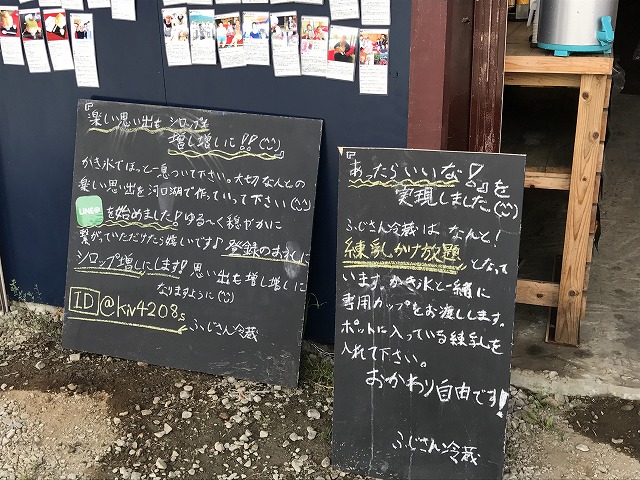 『楽しい思い出も シロップも
増し増しに!!(^^)』
かき氷でほっと一息ついて下さい。大切な人との
楽しい思い出を河口湖で作っていって下さい(^^)
LINE@ を始めました!ゆる〜く穏やかに
繋がっていただけたら嬉しいです♪登録のお礼に
シロップ増しにします!思い出も増し増しに
なりますように(^^)
ID @kiv4208s
ふじさん冷蔵
『あったらいいな!』を
実現しました。(^^)
ふじさん冷蔵は なんと!
練乳かけ放題 となって
います。かき氷と一緒に
専用カップをお渡しします。
ポットに入っている練乳を
入れて下さい。
おかわり自由です!
ふじさん冷蔵